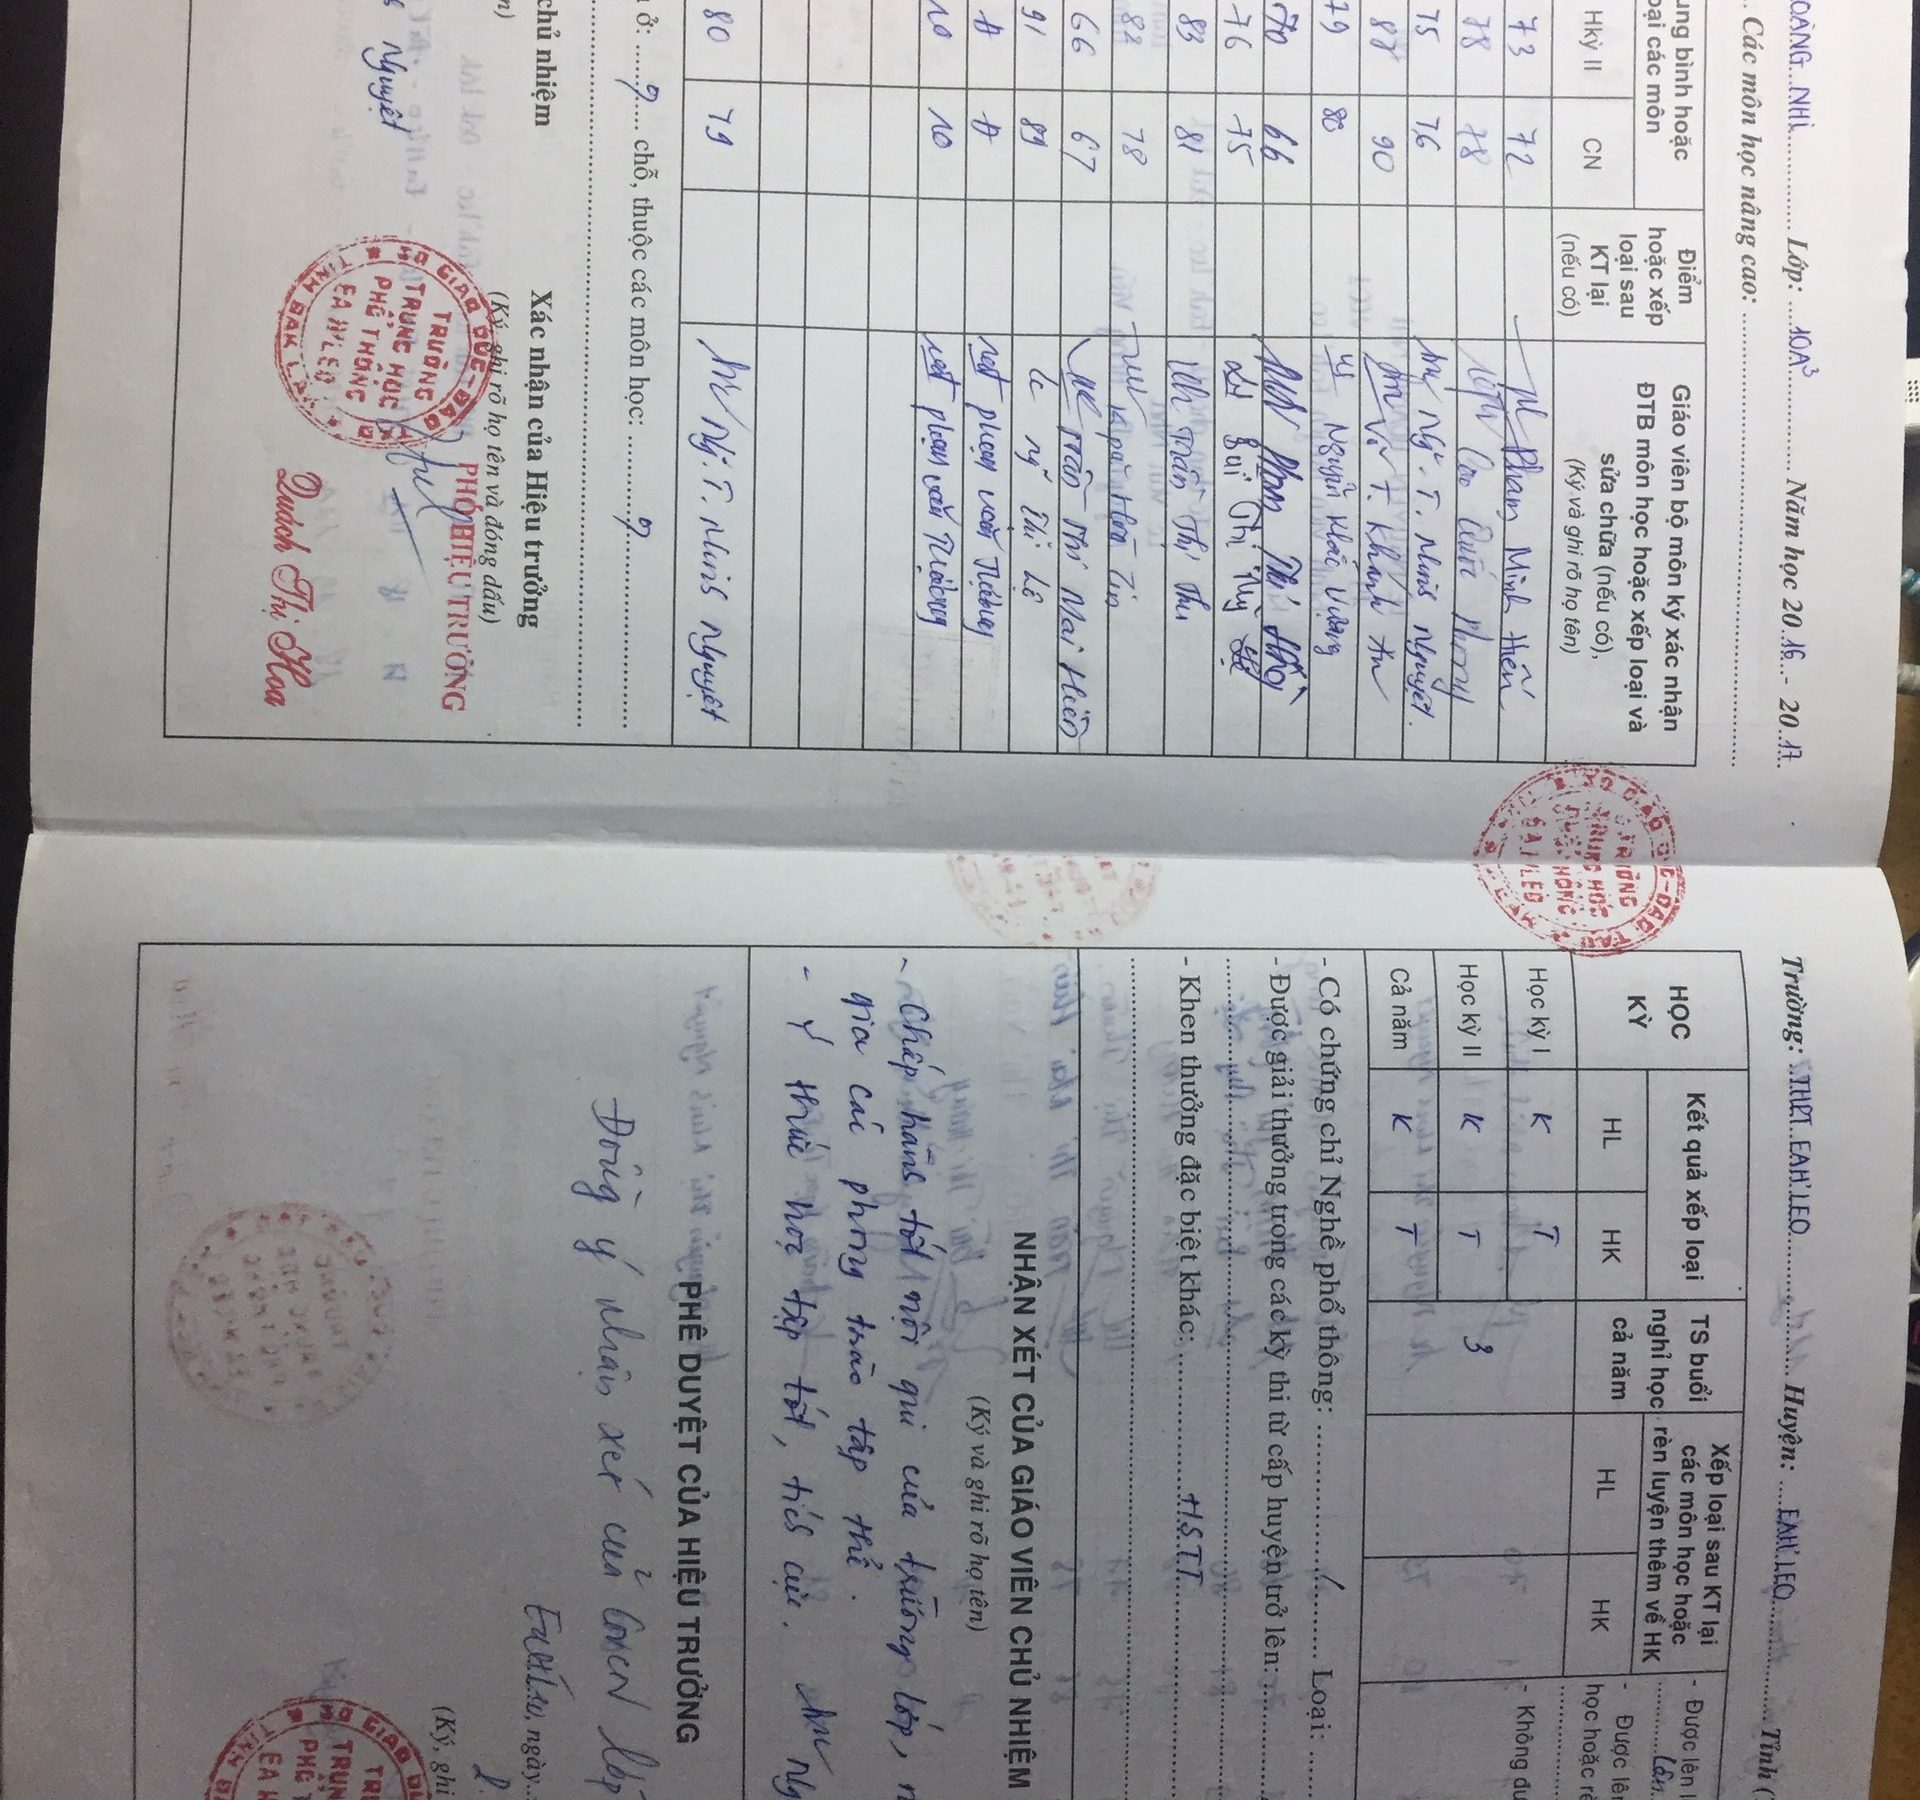 OÀNG NHI Lớp: 10A3 Năm học 20 16 - 20 17
Các môn học nâng cao:
ung bình hoặc
oại các môn
Hkỳ II
CN
Điểm
hoặc xếp
loại sau
KT lại
(nếu có)
Giáo viên bộ môn ký xác nhận
ĐTB môn học hoặc xếp loại và
sửa chữa (nếu có),
(Ký và ghi rõ họ tên)
73 72 Phạm Minh Hiền
78 78
75 76 Ng. T. Minh Nguyệt
88 90 Võ T. Khánh An
79 80 Nguyễn Khắc Vương
70 66
76 75 Bùi Thị Thy
83 81 Trần Thị Thu
82 78
66 67 Trần Thị Mai Hiền
91 89 Ng Thị Lệ
Đ Đ Phạm Văn Trường
10 10 Phạm Văn Trường
80 79 Ng. T. Minh Nguyệt
ở: chỗ, thuộc các môn học:
chủ nhiệm
Nguyệt
Xác nhận của Hiệu trưởng
(Ký, ghi rõ họ tên và đóng dấu)
PHÓ HIỆU TRƯỞNG
TRƯỜNG
TRUNG HỌC
PHỔ THÔNG
EA H'LEO
Quách Thị Hoa
Trường: THPT EAH'LEO Huyện: EAH'LEO Tỉnh
HỌC
KỲ
Kết quả xếp loại
HL
HK
TS buổi
nghỉ học
cả năm
Xếp loại sau KT lại
các môn học hoặc
rèn luyện thêm về HK
HL
HK
- Được lên
- Được lê
học hoặc rè
- Không đủ
Học kỳ I K T
Học kỳ II K T 3
Cả năm K T
- Có chứng chỉ Nghề phổ thông: / Loại:
- Được giải thưởng trong các kỳ thi từ cấp huyện trở lên:
- Khen thưởng đặc biệt khác: H.S.T.T
NHẬN XÉT CỦA GIÁO VIÊN CHỦ NHIỆM
(Ký và ghi rõ họ tên)
- Chấp hành tốt nội qui của trường lớp,
gia các phong trào tập thể.
- Ý thức học tập tốt, tiến bộ.
PHÊ DUYỆT CỦA HIỆU TRƯỞNG
Đồng ý nhận xét của GVCN lớp
ngày
(Ký, ghi